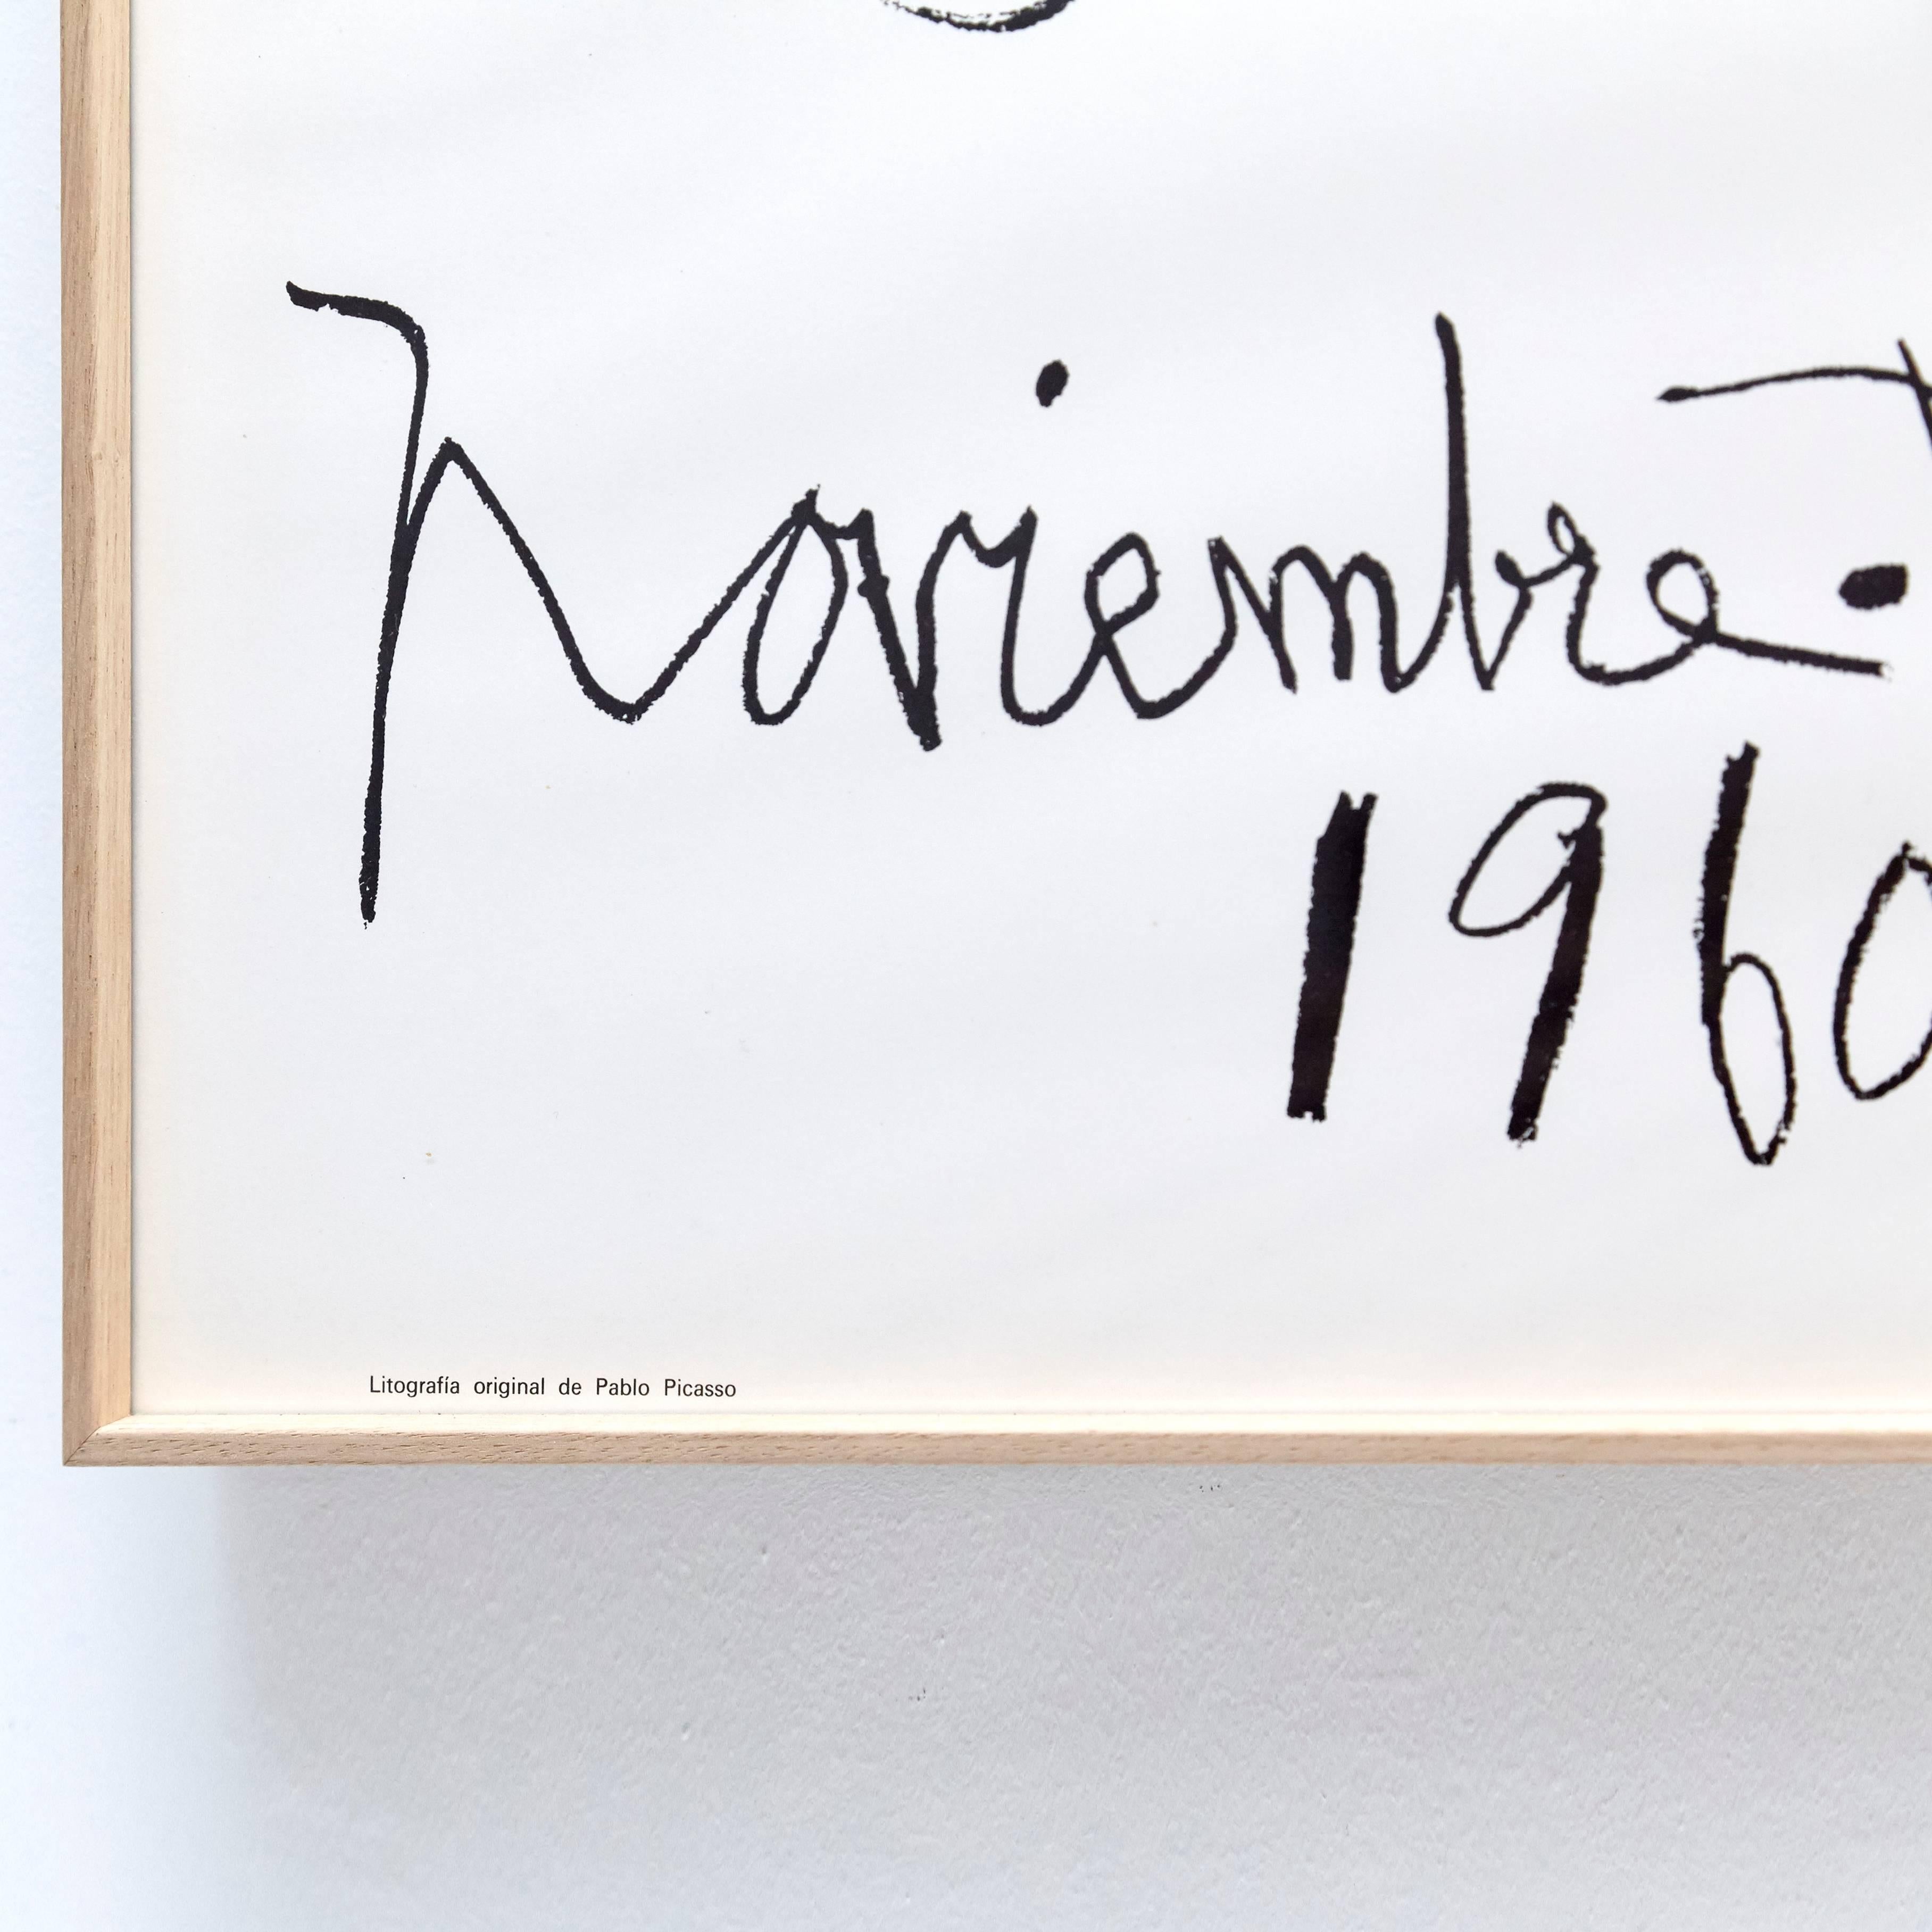 Noviembre -
1960
Litografía original de Pablo Picasso